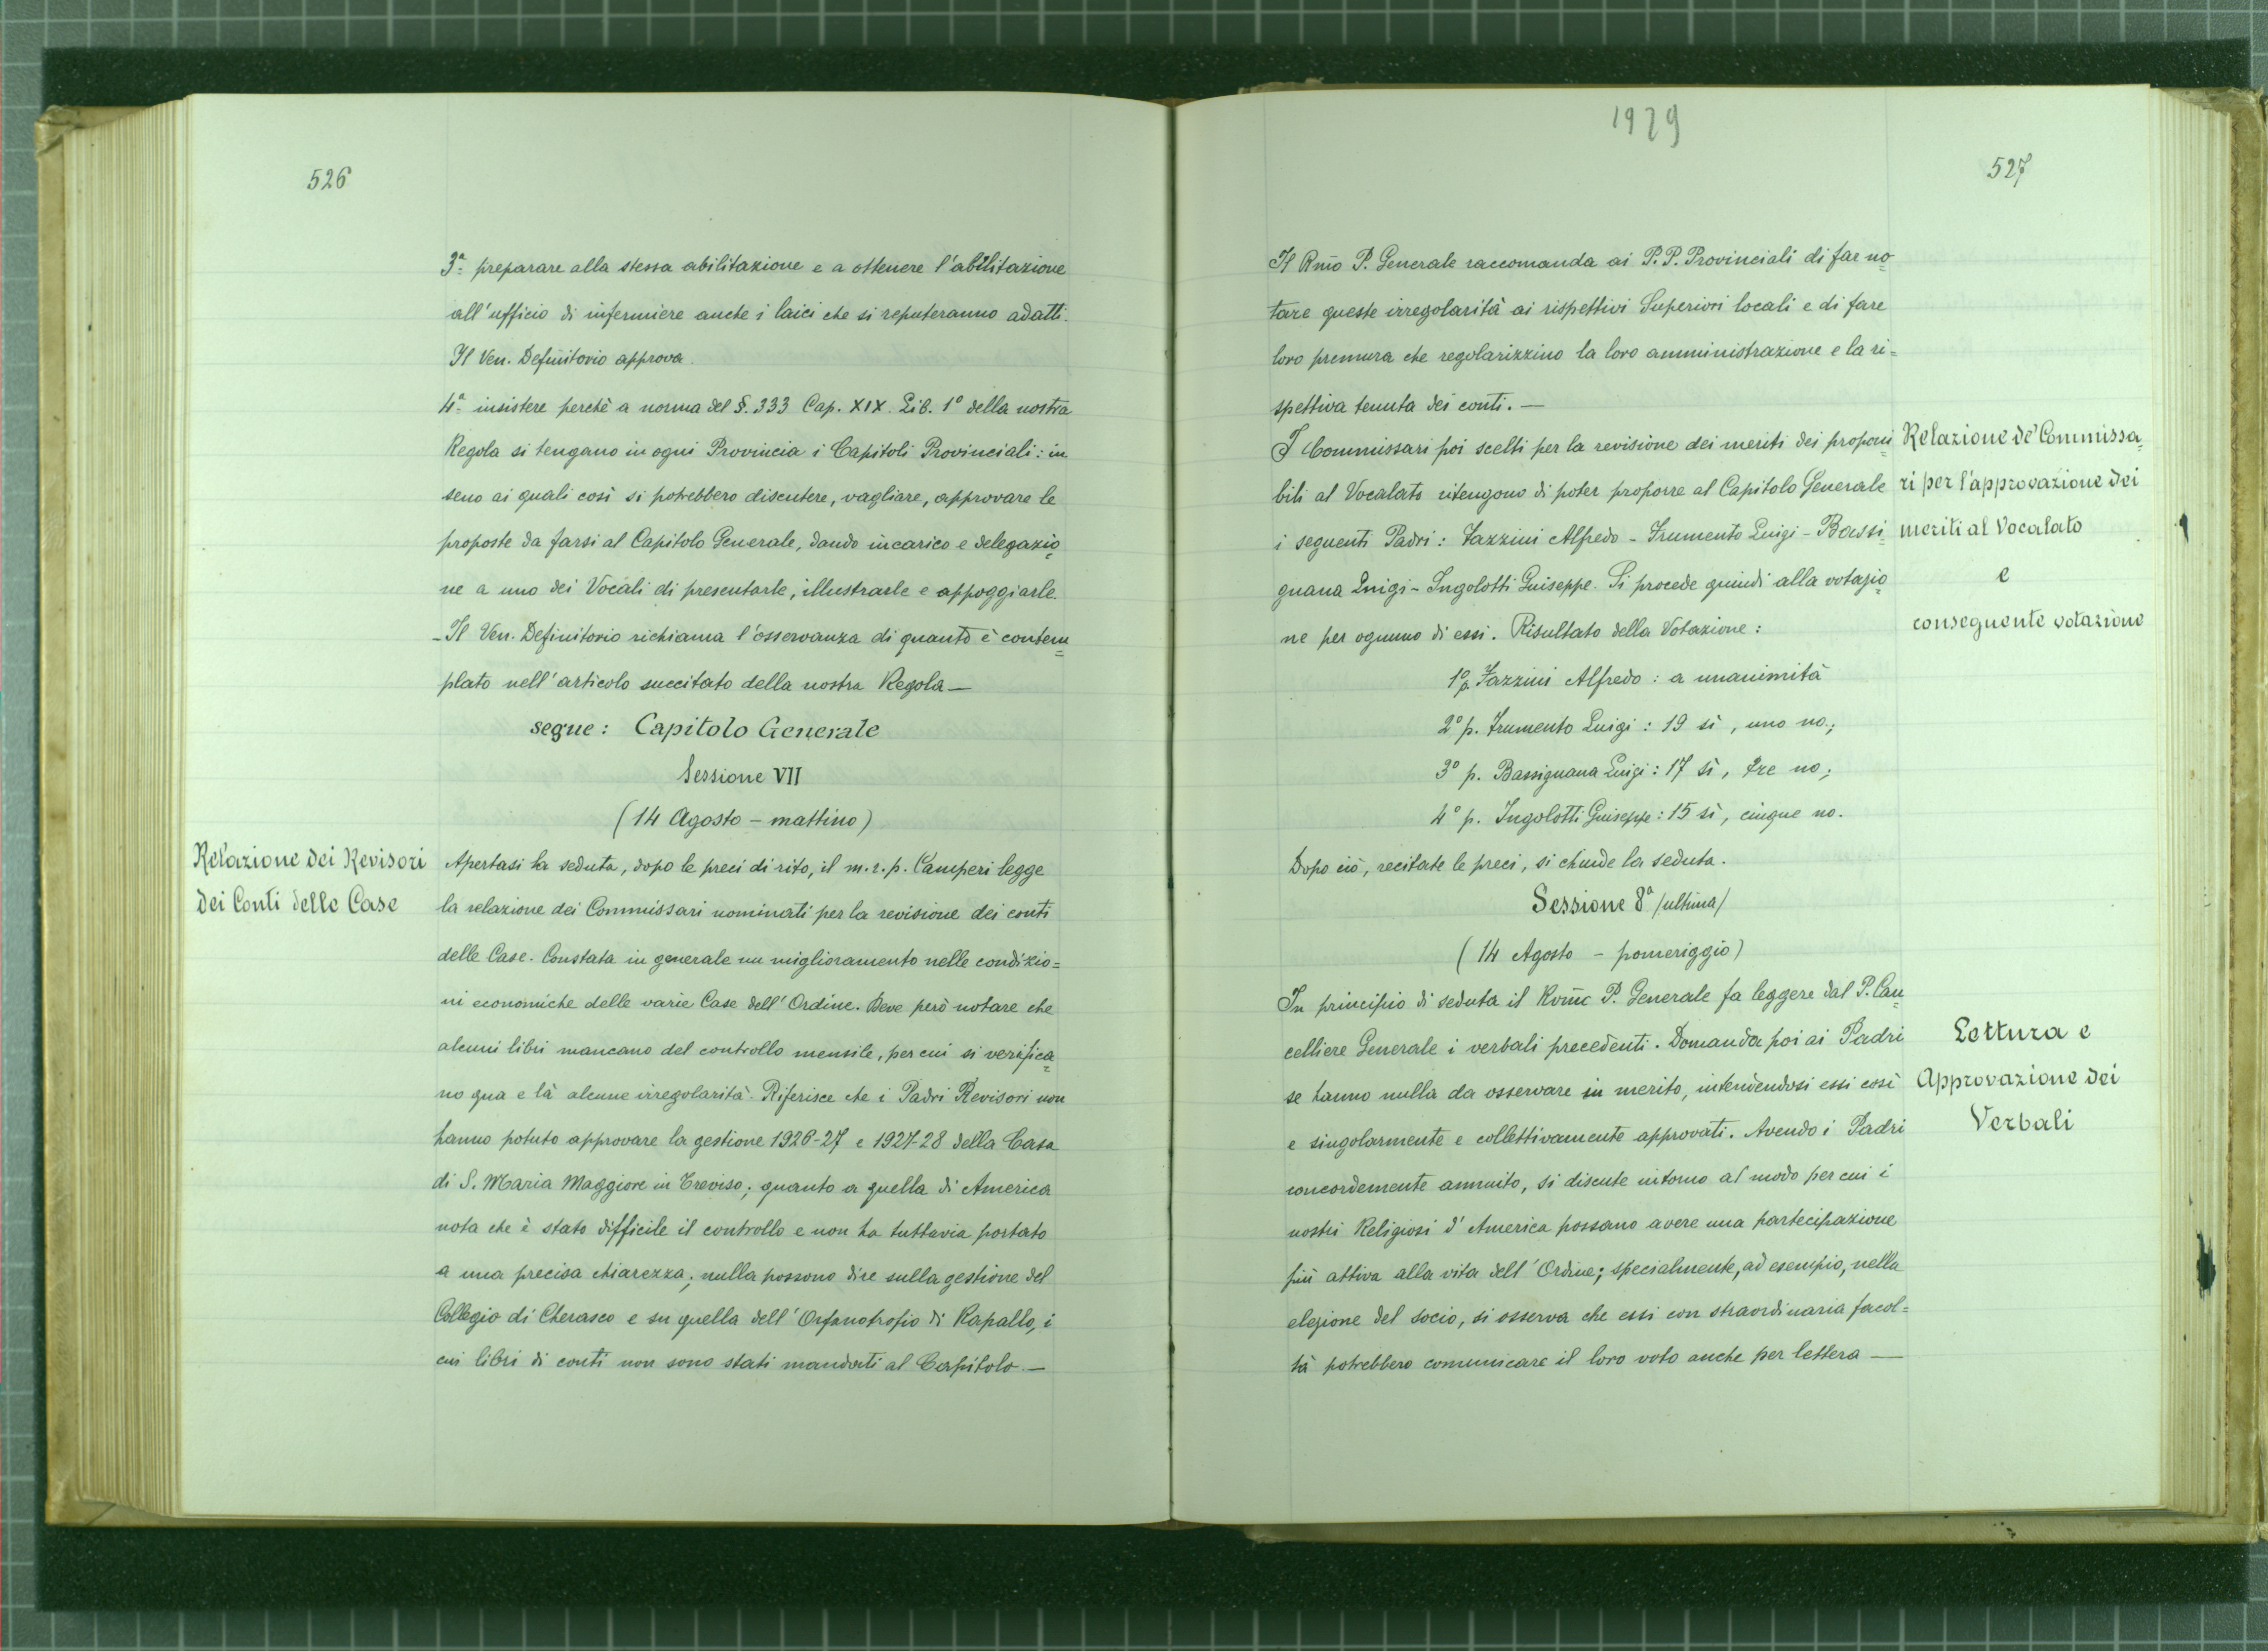 526
3ª preparare alla stessa abilitazione e a ottenere l'abilitazione
all'ufficio di infermiere anche i laici che si reputeranno adatti.
Il Ven. Definitorio approva.
4ª insistere perchè a norma del §. 333 Cap. XIX. Lib. 1º della nostra
Regola si tengano in ogni Provincia i Capitoli Provinciali: in
seno ai quali così si potrebbero discutere, vagliare, approvare le
proposte da farsi al Capitolo Generale, dando incarico e delegazio=
ne a uno dei Vocali di presentarle, illustrarle e appoggiarle.
- Il Ven. Definitorio richiama l'osservanza di quanto è contem=
plato nell'articolo succitato della nostra Regola —
segue: Capitolo Generale
Sessione VII
(14 Agosto - mattino)
Relazione dei Revisori
dei Conti delle Case
Apertasi la seduta, dopo le preci di rito, il m. r. p. Camperi legge
la relazione dei Commissari nominati per la revisione dei conti
delle Case. Constata in generale un miglioramento nelle condizio=
ni economiche delle varie Case dell'Ordine. Deve però notare che
alcuni libri mancano del controllo mensile, per cui si verifica=
no qua e là alcune irregolarità. Riferisce che i Padri Revisori non
hanno potuto approvare la gestione 1926-27 e 1927-28 della Casa
di S. Maria Maggiore in Treviso; quanto a quella di America
nota che è stato difficile il controllo e non ha tuttavia portato
a una precisa chiarezza; nulla possono dire sulla gestione del
Collegio di Cherasco e su quella dell'Orfanotrofio di Rapallo, i
cui libri di conti non sono stati mandati al Capitolo. —
1929
527
Il Rmo P. Generale raccomanda ai P. P. Provinciali di far no=
tare queste irregolarità ai rispettivi Superiori locali e di fare
loro premura che regolarizzino la loro amministrazione e la ri=
spettiva tenuta dei conti. —
I Commissari poi scelti per la revisione dei meriti dei proponi=
bili al Vocalato ritengono di poter proporre al Capitolo Generale
i seguenti Padri: Fazzini Alfredo - Frumento Luigi - Bassi=
gnana Luigi - Ingolotti Guiseppe. Si procede quindi alla votazio=
ne per ognuno di essi. Risultato della Votazione:
Relazione de' Commissa=
ri per l'approvazione dei
meriti al Vocalato
e
conseguente votazione
1º p. Fazzini Alfredo: a unanimità
2º p. Frumento Luigi: 19 sì, uno no.;
3º p. Bassignana Luigi: 17 sì, tre no;
4º p. Ingolotti Guiseppe: 15 sì, cinque no.
Dopo ciò, recitate le preci, si chiude la seduta.
Sessione 8ª (ultima)
(14 Agosto - pomeriggio)
In principio di seduta il Rvm̃o P. Generale fa leggere dal P. Can=
celliere Generale i verbali precedenti. Domanda poi ai Padri
se hanno nulla da osservare in merito, intendendosi essi così
e singolarmente e collettivamente approvati. Avendo i Padri
concordemente annuito, si discute intorno al modo per cui i
nostri Religiosi d'America possano avere una partecipazione
più attiva alla vita dell'Ordine; specialmente, ad esempio, nella
elezione del socio, si osserva che essi con straordinaria facol=
tà potrebbero comunicare il loro voto anche per lettera —
Lettura e
Approvazione dei
Verbali